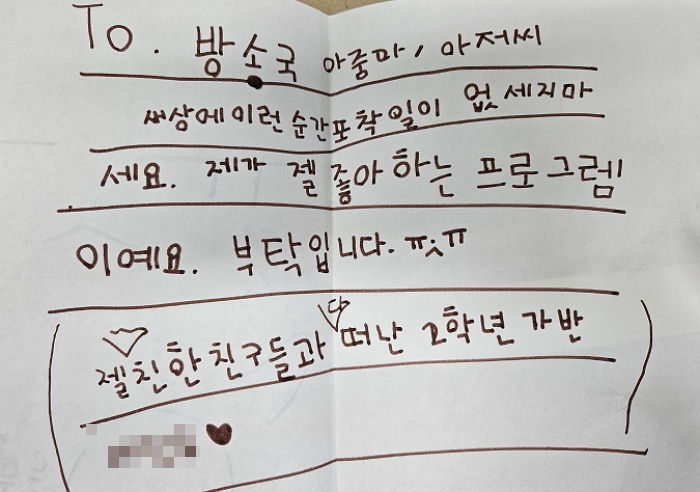 To. 방소국 아중마, 아저씨
쌔상에이런 순간포착일이 없세지마
세요. 제가 젤 좋아하는 프로그렘
이예요. 부탁입니다. ㅠㅅㅠ
다
젤친한친구들과 떠난 2학년 가반
♥